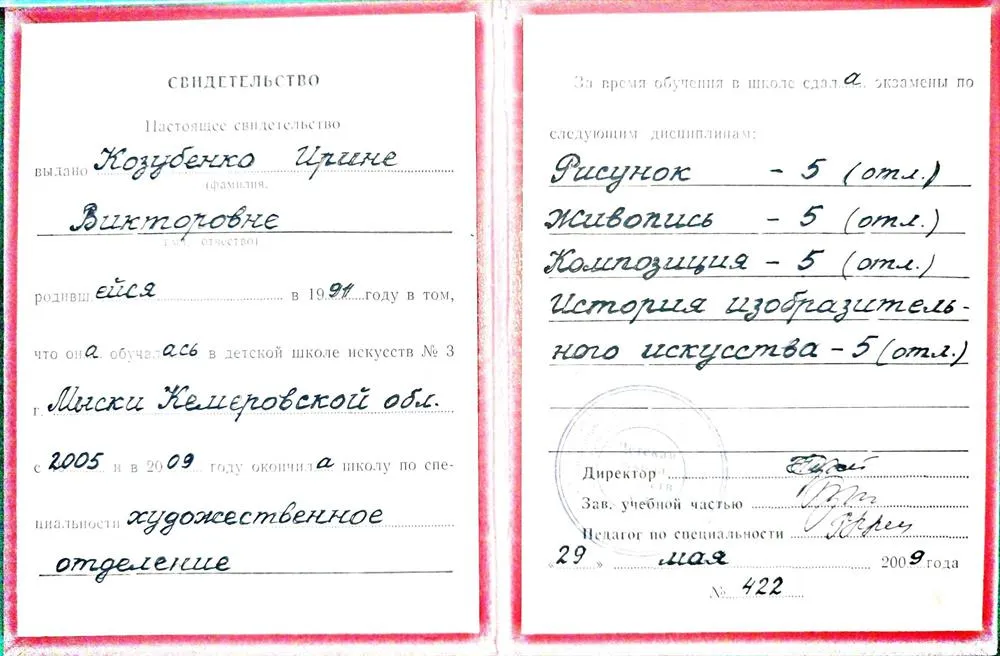 СВИДЕТЕЛЬСТВО
Настоящее свидетельство
выдано Козубенко Ирине
(фамилия,
Викторовне
имя, отчество)
родившейся в 1991 году в том,
что она обучалась в детской школе искусств № 3
г. Мыски Кемеровской обл.
с 2005 и в 2009 году окончила школу по спе-
циальности художественное
отделение
За время обучения в школе сдала экзамены по
следующим дисциплинам:
Рисунок - 5 (отл.)
Живопись - 5 (отл.)
Композиция - 5 (отл.)
История изобразитель-
ного искусства - 5 (отл.)
Детская
Директор
Зав. учебной частью
Педагог по специальности
"29" мая 2009 года
№ 422